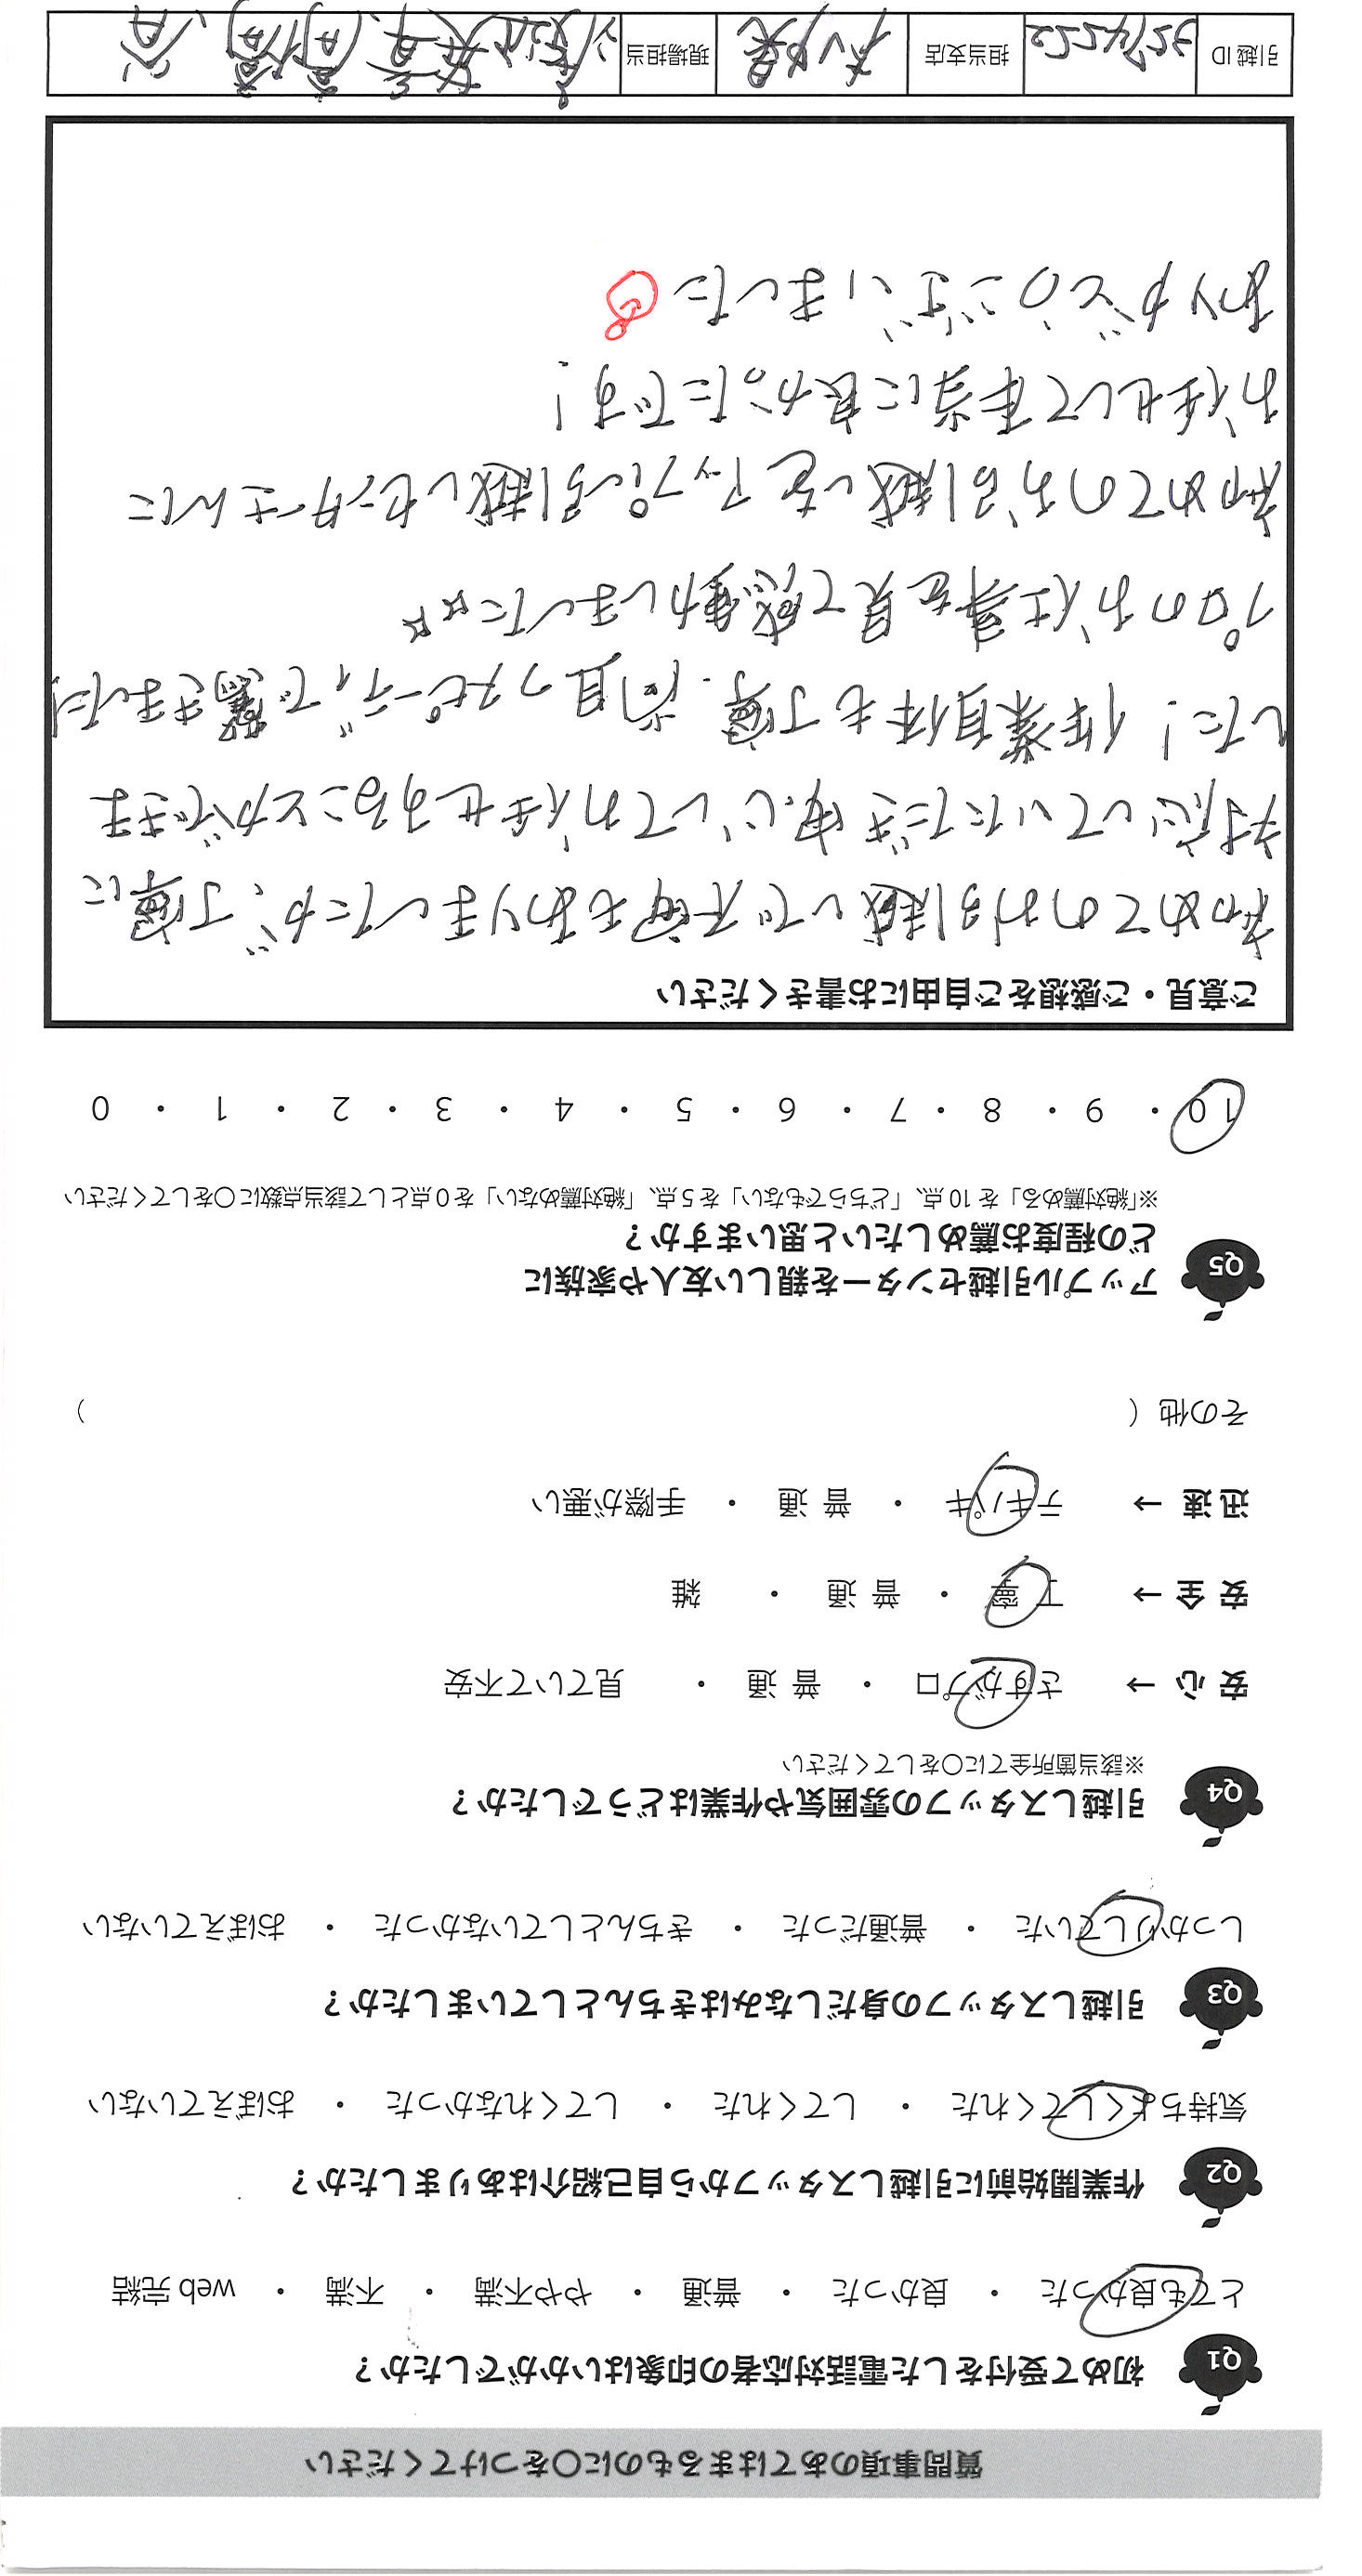 質問事項のあてはまるものに〇をつけてください
Q1 初めて受付をした電話対応者の印象はいかがでしたか？
とても良かった ・ 良かった ・ 普通 ・ やや不満 ・ 不満 ・ web 完結
Q2 作業開始前に引越しスタッフから自己紹介はありましたか？
気持ちよくしてくれた ・ してくれた ・ してくれなかった ・ おぼえていない
Q3 引越しスタッフの身だしなみはきちんとしていましたか？
しっかりしていた ・ 普通だった ・ きちんとしていなかった ・ おぼえていない
Q4 引越しスタッフの雰囲気や作業はどうでしたか？
※該当箇所全てに〇をしてください
安心 → さすがプロ ・ 普通 ・ 見ていて不安
安全 → 丁寧 ・ 普通 ・ 雑
迅速 → テキパキ ・ 普通 ・ 手際が悪い
その他（　　　）
Q5 アップル引越センターを親しい友人や家族に
どの程度お薦めしたいと思いますか？
※「絶対薦める」を 10 点、「どちらでもない」を 5 点、「絶対薦めない」を 0 点として該当点数に〇をしてください
10 ・ 9 ・ 8 ・ 7 ・ 6 ・ 5 ・ 4 ・ 3 ・ 2 ・ 1 ・ 0
ご意見・ご感想をご自由にお書きください
初めてのお引越しで不安もありましたが、丁寧に
対応していただき安心してお任せすることができま
した！作業自体も丁寧、尚且つスピーディで驚きました！
プロのお仕事を見て感動しました☆☆
初めてのお引越しをアップル引越しセンターさんに
お任せして本当に良かったです！
ありがとうございました
引越ID 担当支店 現場担当